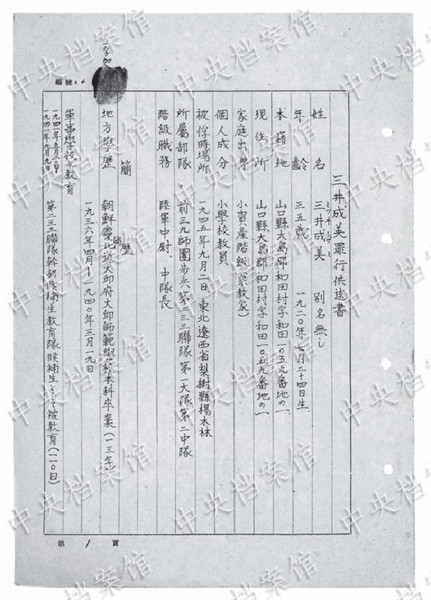 三井成美罪行供述書
姓名 三井成美 別名無し
年齢 三五歳 一九二〇年七月二十四日生
本籍地 山口縣大島郡和田村字和田一〇五九番地の一
現住所 山口縣大島郡和田村字和田一〇五九番地の一
家庭出身 小資産階級(宗教家)
個人成分 小學校教員
被俘時場所 一九四五年九月二日、東北遼西省梨樹縣楊木林
所屬部隊 前三九師團歩兵第二三三聯隊第一大隊第二中隊
階級職務 陸軍中尉、中隊長
簡歴
地方學歴 朝鮮慶北道大邱府大邱師範學校本科卒業(一三年)
一九三六年四月-一九四〇年三月一九日
軍事學校教育
第二三三聯隊幹部候補生教育隊候補生として被教育(二〇日)
第 1 頁
中央档案馆